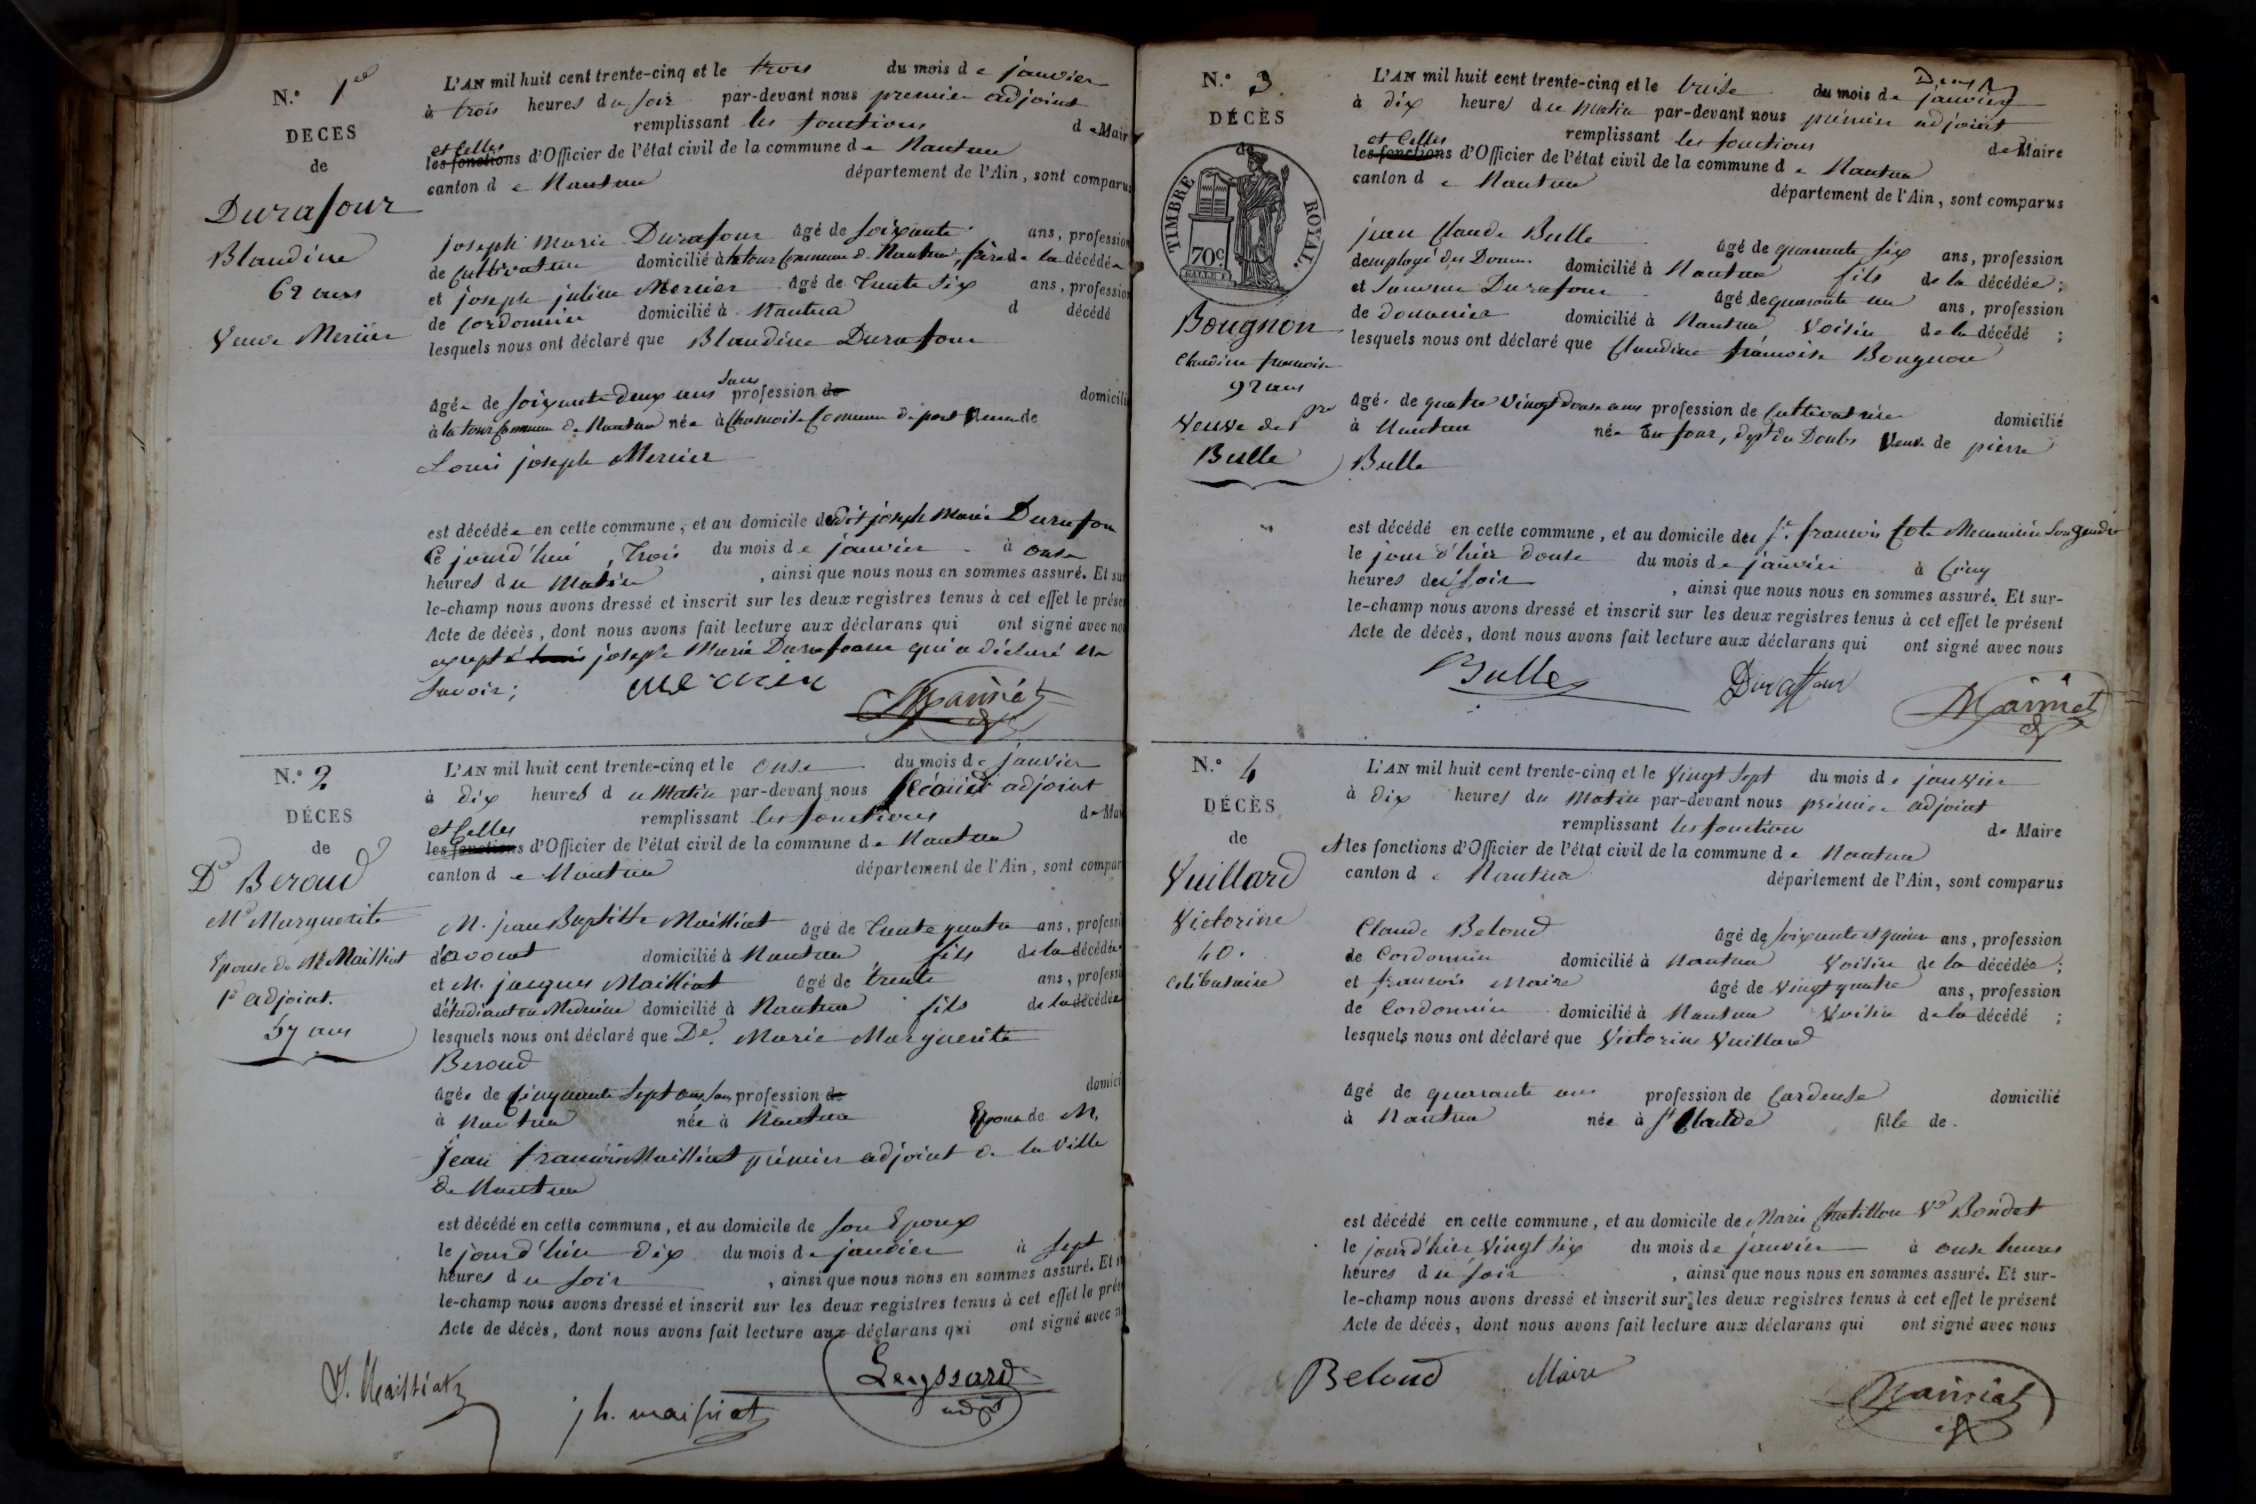 N.° 1er
DECES
de
Durafour
Blandine
62 ans
Veuve Mercier
L'AN mil huit cent trente-cinq et le trois du mois de janvier
à trois heures du soir par-devant nous premier adjoint
remplissant les fonctions de Mair
et celles
les fonctions d'Officier de l'état civil de la commune de Nantua
canton de Nantua département de l'Ain, sont comparus
joseph Marie Durafour âgé de soixante ans, profession
de Cultivateur domicilié à la tour Commune de Nantua, frère de la décédée
et joseph julien Mercier âgé de trente six ans, profession
de Cordonnier domicilié à Nantua d décédé
lesquels nous ont déclaré que Blandine Durafour
sans
âgée de soixante deux ans profession de domicili
à la tour Commune de Nantua née à Commune de port Veuve de
Louis joseph Mercier
est décédée en cette commune, et au domicile dudit joseph Marie Durafour
Ce jourd'hui, trois du mois de janvier à onse
heures du Matin, ainsi que nous nous en sommes assuré. Et sur
le-champ nous avons dressé et inscrit sur les deux registres tenus à cet effet le présen
Acte de décès, dont nous avons fait lecture aux déclarans qui ont signé avec nou
excepté joseph Marie Durafour qui a déclaré ne
savoir;
Mercier
Mainiat
N.° 2
DÉCES
de
De Beroud
Mie Marguerite
Epouse de Mr Maissiat
1er adjoint.
57 ans
L'AN mil huit cent trente-cinq et le onse du mois de janvier
à dix heures du Matin par-devant nous second adjoint
remplissant les fonctions de Mair
et Celles
les fonctions d'Officier de l'état civil de la commune de Nantua
canton de Nantua département de l'Ain, sont compar
M. jean Baptiste Maissiat âgé de trente quatre ans, professi
d'avocat domicilié à Nantua, fils de la décédée
et M. jacques Maissiat âgé de trente ans, professi
d'étudiant en Medecine domicilié à Nantua fils de la décédée
lesquels nous ont déclaré que De. Marie Marguerite
Beroud
âgée de cinquante sept ans, sans profession de domici
à Nantua née à Nantua Epouse de M.
jean françois Maissiat prémier adjoint de la Ville
de Nantua
est décédé en cette commune, et au domicile de son Epoux
le jour d'hier dix du mois de janvier à sept
heures du soir, ainsi que nous nous en sommes assuré. Et s
le-champ nous avons dressé et inscrit sur les deux registres tenus à cet effet le prés
Acte de décès, dont nous avons fait lecture aux déclarans qui ont signé avec n
J. Maissiat
jh. maissiat
Leyssard
adjt
N.° 3
DÉCÈS
de
TIMBRE ROYAL.
70c.
Bougnon
Claudine francoise
92 ans
Veuve de Pre
Bulle
L'AN mil huit cent trente-cinq et le treise du mois de janvier
à dix heures du Matin par-devant nous prémier adjoint
remplissant les fonctions de Maire
et Celles
les fonctions d'Officier de l'état civil de la commune de Nantua
canton de Nantua département de l'Ain, sont comparus
jean Claude Bulle âgé de quarante six ans, profession
d'employé des Douanes domicilié à Nantua fils de la décédée;
et Durafour âgé de quarante un ans, profession
de douanier domicilié à Nantua Voisin de la décédé;
lesquels nous ont déclaré que Claudine françoise Bougnon
âgée de quatre vingt douse ans profession de Cultivatrice domicilié
à Nantua née au four, dept du Doubs Veuve de pierre
Bulle
est décédé en cette commune, et au domicile du Sr. françois son gendre
le jour d'hier douse du mois de janvier à Cinq
heures du soir, ainsi que nous nous en sommes assuré. Et sur-
le-champ nous avons dressé et inscrit sur les deux registres tenus à cet effet le présent
Acte de décès, dont nous avons fait lecture aux déclarans qui ont signé avec nous
Bulle
Duraffour
Mainiat
N.° 4
DÉCÈS
de
Vuillard
Victorine
40.
célibataire
L'AN mil huit cent trente-cinq et le Vingt sept du mois de janvier
à dix heures du Matin par-devant nous prémier adjoint
remplissant les fonctions de Maire
et les fonctions d'Officier de l'état civil de la commune de Nantua
canton de Nantua département de l'Ain, sont comparus
Claude Beloud âgé de soixante et quinse ans, profession
de Cordonnier domicilié à Nantua Voisin de la décédée;
et françois Maire âgé de Vingt quatre ans, profession
de Cordonnier domicilié à Nantua Voisin de la décédé;
lesquels nous ont déclaré que Victorine Vuillard
âgé de quarante ans profession de Cardeuse domicilié
à Nantua née à St Claude fille de.
est décédé en cette commune, et au domicile de Marie Chatillon Ve Bondet
le jour d'hier Vingt six du mois de janvier à onse heures
heures du soir, ainsi que nous nous en sommes assuré. Et sur-
le-champ nous avons dressé et inscrit sur les deux registres tenus à cet effet le présent
Acte de décès, dont nous avons fait lecture aux déclarans qui ont signé avec nous
Beloud
Maire
Mainiat